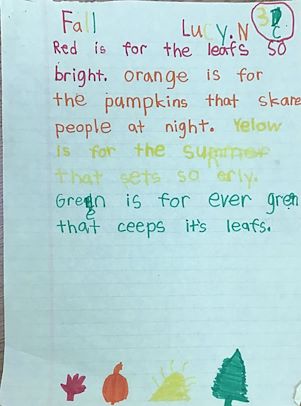 Fall Lucy.N 3D C
Red is for the leafs so
bright. orange is for
the pumpkins that skare
people at night. Yelow
is for the summer
that sets so erly.
Green is for ever gren
that ceeps it's leafs.